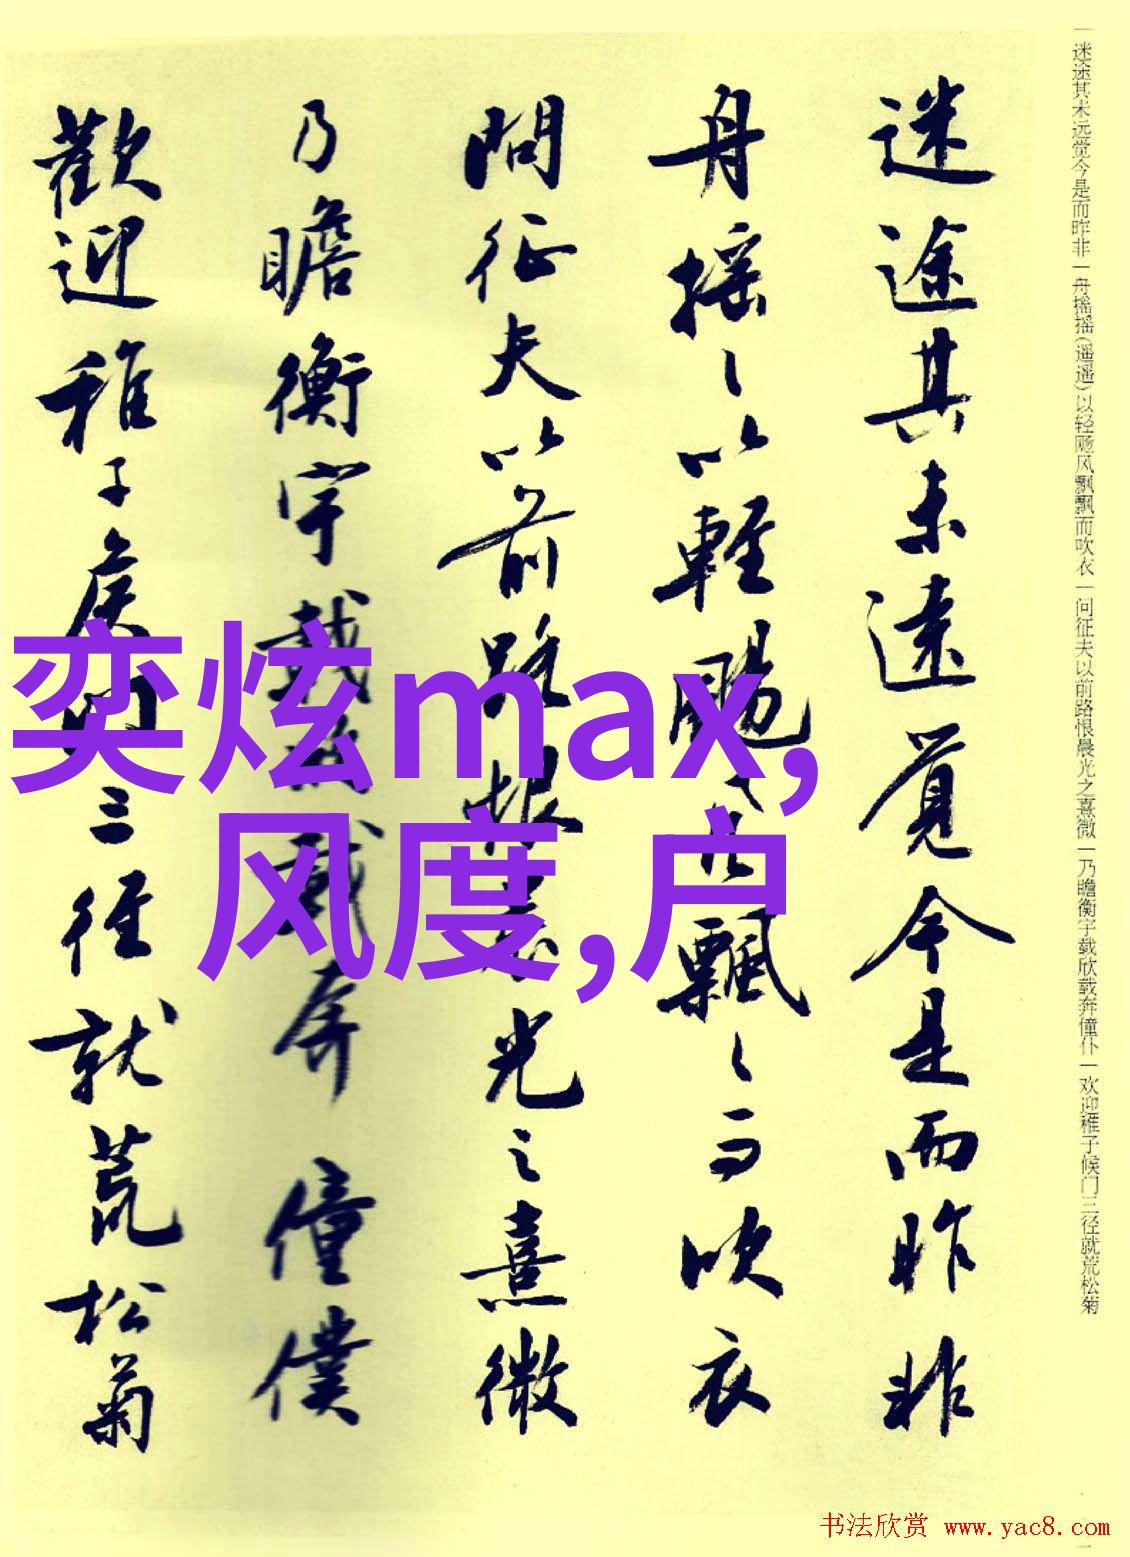 迷途其未远觉今是而昨非一舟摇摇(遥遥)以轻飏风飘飘而吹衣一问征夫以前路恨晨光之熹微一乃瞻衡宇载欣载奔僮仆一欢迎稚子候门三径就荒松菊
迷途其未遠覓今是而昨非
舟摇〻以輕颺風飄〻而吹衣
問征夫以前路恨晨光之熹微
乃瞻衡宇載欣載奔僮僕
歡迎稚子侯門三徑就荒松菊
奕炫max,
风度,户
书法欣赏 www.yac8.com